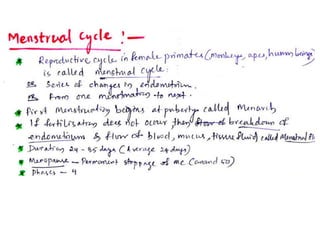 Menstrual Cycle :-
* Reproductive cycle in female primates (monkeys, apes, human beings)
is called menstrual cycle:
OR Series of changes in endometrium.
OR From one menstruation to next.
* First Menstruation begins at puberty called Menarch
* If fertilisation does not occur then flow of breakdown of
endometrium & flow of blood, mucus, tissue fluid called Menstrual
* Duration 24 - 35 days (Average 28 days)
* Menopause - Permanent stoppage of mc (around 50)
* Phases - 4